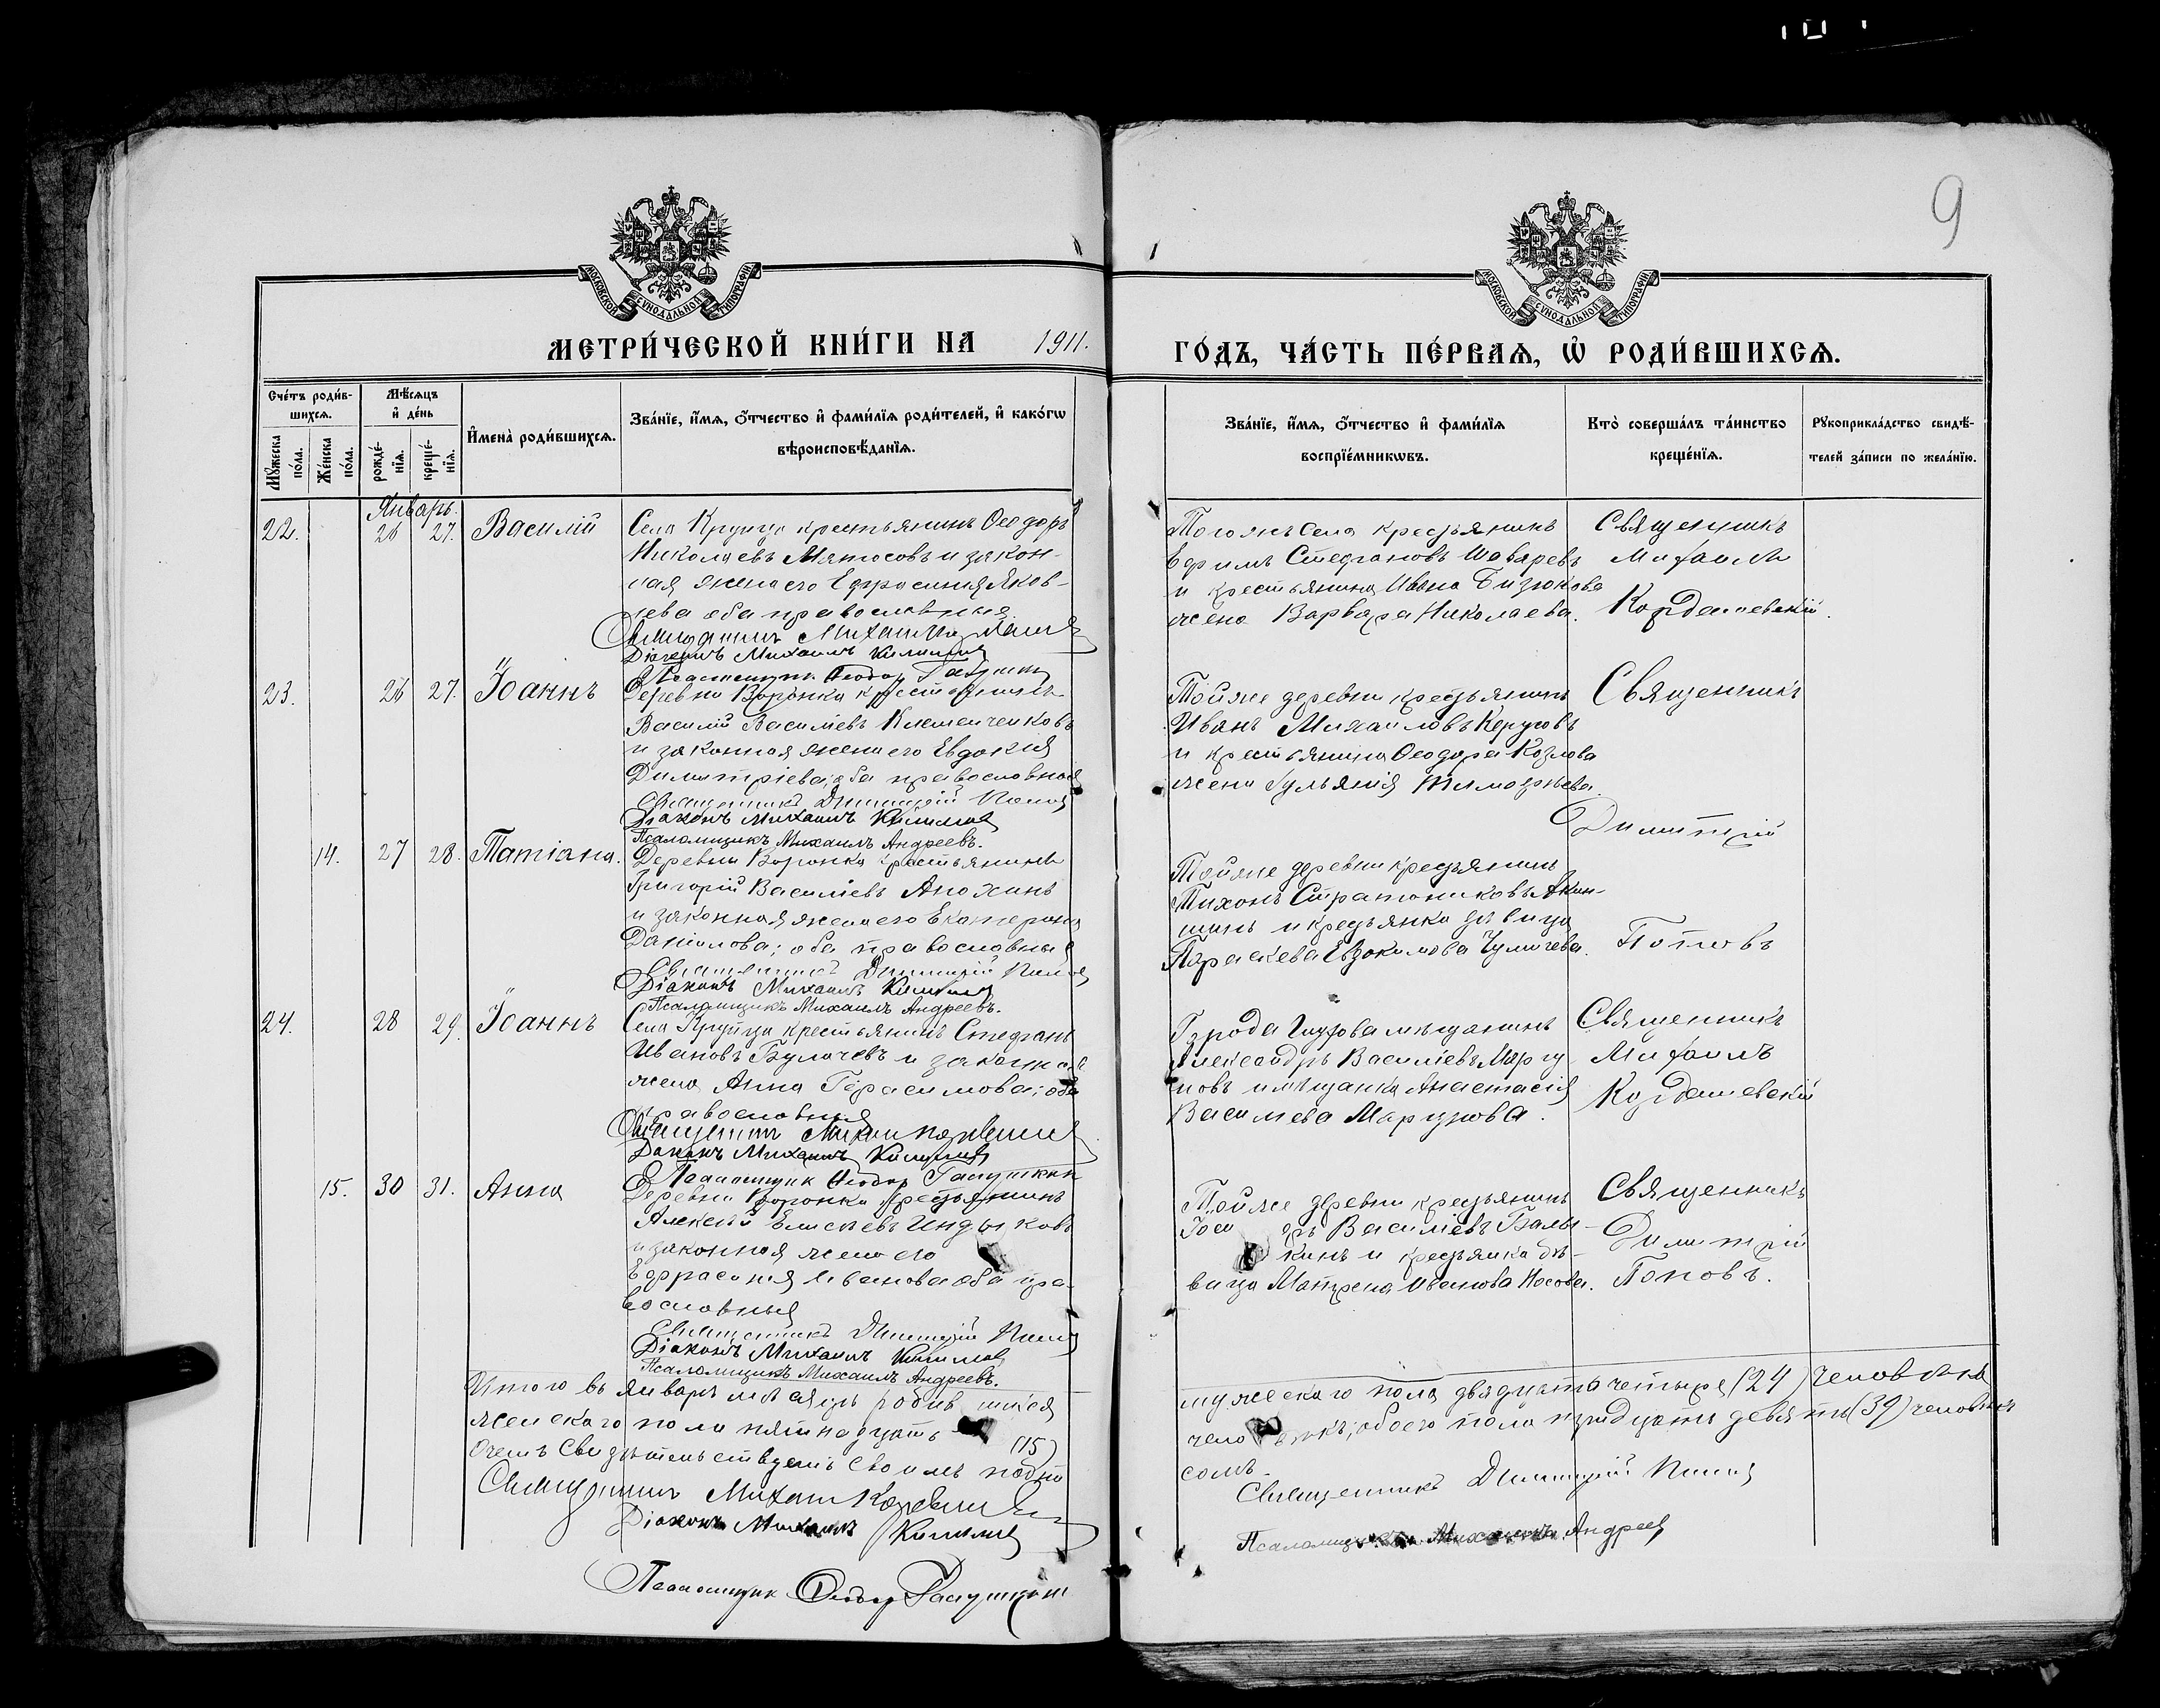 9
МОСКОВСКОЙ СѴНОДАЛЬНОЙ ТИПОГРАФІИ
МОСКОВСКОЙ СѴНОДАЛЬНОЙ ТИПОГРАФІИ
МЕТРИ́ЧЕСКОЙ КНИ́ГИ НА 1911. ГО́ДЪ, ЧА́СТЬ ПЕ́РВАѦ, Ѡ҆ РОДИ́ВШИХСѦ.
Сче́тъ роди́вшихсѧ.
Мꙋ́жеска по́ла.
Же́нска по́ла.
Мѣ́сѧцъ и҆ де́нь
рожде́нїѧ.
креще́нїѧ.
И҆мена̀ роди́вшихсѧ.
Зва́нїе, и҆́мѧ, ѻ҆́тчество и҆ фами́лїѧ роди́телей, и҆ како́гѡ
вѣроисповѣ́данїѧ.
Зва́нїе, и҆́мѧ, ѻ҆́тчество и҆ фами́лїѧ
воспрїе́мникѡвъ.
Кто̀ соверша́лъ та́инство
креще́нїѧ.
Рꙋкоприкла́дство свидѣ́-
телей за́писи по жела́нїю.
Январь.
22. 26 27. Василій
Села Крупца крестьянинъ Ѳеодоръ
Николаевъ Матосовъ и закон-
ная жена его Ефросинія Яков-
лева оба православные
Священникъ Михаилъ
Діаконъ Михаилъ
Псаломщикъ Ѳеодор
Того же села крестьянинъ
Ефимъ Стефановъ
и крестьянина Ивана Бизюкова
жена Варвара Николаева.
Священникъ
Михаилъ
Кордашевскій.
23. 26 27. Іоаннъ
Деревни Воронка крестьянинъ
Василій Василіевъ Клименченковъ
и законная жена его Евдокія
Димитріева; оба православные
Священникъ Димитрій Попов
Діаконъ Михаилъ
Псаломщикъ Михаилъ Андреевъ.
Той же деревни крестьянинъ
Иванъ Михаиловъ
и крестьянина Ѳеодора Козлова
жена Іульянія Тимоѳеева.
Священникъ
Димитрій
14. 27 28. Татіана.
Деревни Воронка крестьянинъ
Григорій Василіевъ Анохинъ
и законная жена его Екатерина
Даніилова; оба православные
Священникъ Димитрій Попов
Діаконъ Михаилъ
Псаломщикъ Михаилъ Андреевъ.
Той же деревни крестьянинъ
Тихонъ Стратониковъ Акин-
шинъ и крестьянка дѣвица
Параскева Евдокимова
Поповъ
24. 28 29. Іоаннъ
Села Крупца крестьянинъ Стефанъ
Ивановъ Булычевъ и законная
жена Анна Герасимова; оба
православные
Священникъ Михаил
Діаконъ Михаилъ
Псаломщик Ѳеодор Галушкин
Города Глухова мѣщанинъ
Александръ Василіевъ
и мѣщанка Анастасія
Василіева
Священникъ
Михаилъ
Кордашевскій
15. 30 31. Анна
Деревни Воронка крестьянинъ
Алексѣй Елисѣевъ Индыковъ
и законная жена его
Ефросинія Иванова оба пра-
вославные
Священникъ Димитрій Попов
Діаконъ Михаилъ
Псаломщикъ Михаилъ Андреевъ.
Той же деревни крестьянинъ
Василіевъ
и крестьянка дѣ-
вица Матрена Иванова Носова.
Священникъ
Димитрій
Поповъ.
Итого въ январѣ мѣсяцѣ родившихся мужескаго пола двадцать четыре (24) человѣка
женскаго пола пятнадцать (15) человѣкъ; обоего пола тридцать девять (39) человѣкъ
о чемъ свидѣтельствуемъ своимъ подписомъ.
Священникъ Михаил
Священникъ Димитрій Попов
Діаконъ Михаилъ
Псаломщикъ Михаилъ Андреев
Псаломщик Ѳеодор Галушкин